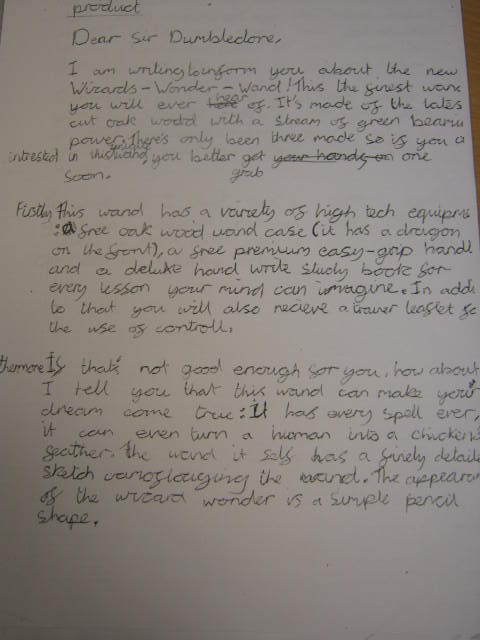 product
Dear Sir Dumbledore,
I am writing to inform you about the new
Wizards-Wonder-Wand! This the finest wand
you will ever hear of. It's made of the lates
cut oak wodd with a stream of green
power. There's only been three made so if you a
intrested in this unique wand, you better get your hands on grab one
soon.
Firstly this wand has a variety of high tech equipme
: A free oak wood wand case (it has a dragon
on the front), a free premium easy-grip handl
and a deluke hand write study book for
every lesson your mind can imagine. In addi
to that you will also recieve a trainer leaflet fo
the use of controll.
thermore If that's not good enough for you, how about
I tell you that this wand can make your
dream come true: It has every spell ever,
it can even turn a human into a chickens
feather. The wand it self has a finely detaile
sketch the wand. The appearan
of the wizard wonder is a simple pencil
shape.